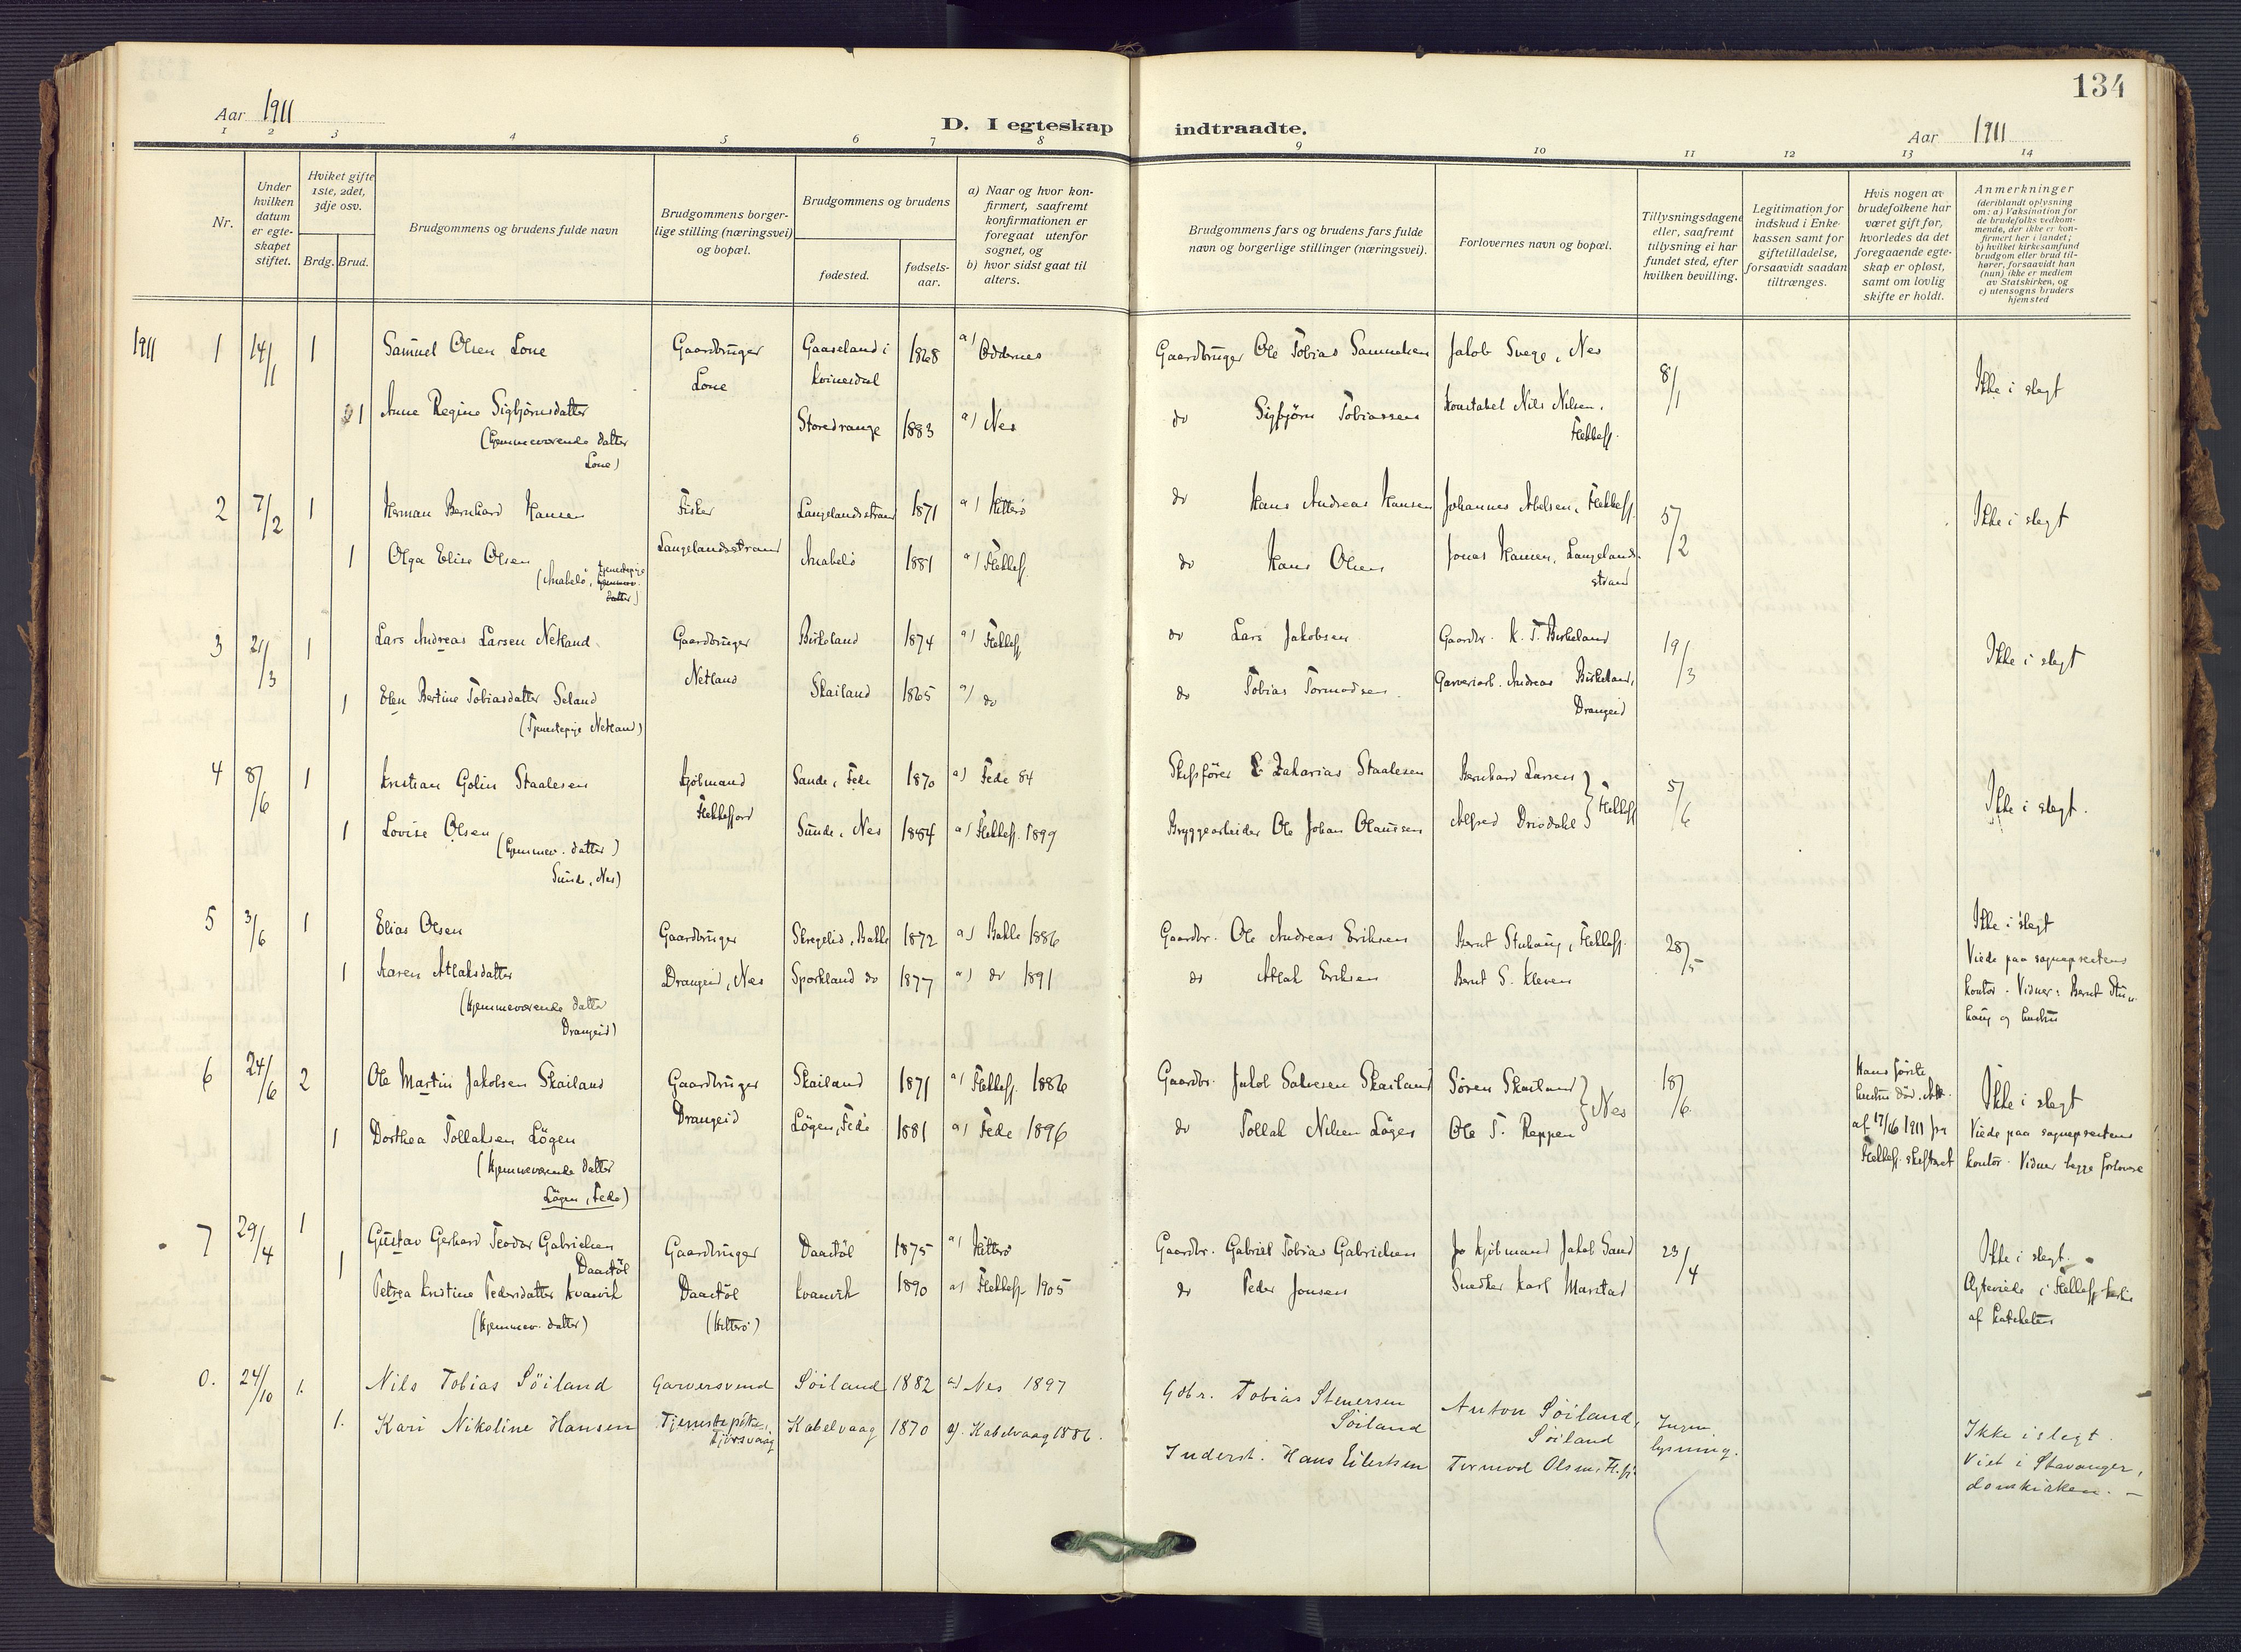 134
Aar 1911
D. I egteskap indtraadte.
Aar 1911
1 2 3 4 5 6 7 8 9 10 11 12 13 14
Nr.
Under hvilken datum er egteskapet stiftet.
Hviket gifte 1ste, 2det, 3dje osv.
Brdg. Brud.
Brudgommens og brudens fulde navn
Brudgommens borgerlige stilling (næringsvei) og bopæl.
Brudgommens og brudens
fødested.
fødselsaar.
a) Naar og hvor konfirmert, saafremt konfirmationen er foregaat utenfor sognet, og
b) hvor sidst gaat til alters.
Brudgommens fars og brudens fars fulde navn og borgerlige stillinger (næringsvei).
Forlovernes navn og bopæl.
Tillysningsdagene eller, saafremt tillysning ei har fundet sted, efter hvilken bevilling.
Legitimation for indskud i Enkekassen samt for giftetilladelse, forsaavidt saadan tiltrænges.
Hvis nogen av brudefolkene har været gift før, hvorledes da det foregaaende egteskap er opløst, samt om lovlig skifte er holdt.
Anmerkninger (deriblandt oplysning om: a) Vaksination for de brudefolks vedkommende, der ikke er konfirmert her i landet; b) hvilket kirkesamfund brudgom eller brud tilhører, forsaavidt han (hun) ikke er medlem av Statskirken, og c) utensogns bruders hjemsted
1911 1 14/1 1 Samuel Olsen Lone Gaardbruger Gaaseland i 1868 a) Oddernes Gaardbruger Ole Tobias Samuelsen Jakob Svege, Nes 8/1 Ikke i slegt
Lone Kvinesdal
1 Anne Regine Sigbjørnsdatter Storedrange 1883 a) Nes do Sigbjørn Tobiassen Konstabel Nils Nilsen,
(hjemmeværende datter Flekkefj.
Lone)
2 7/2 1 Herman Bernhard Hansen Fisker Langelandsstrand 1871 a) Hitterö do Hans Andreas Hansen Johannes Abelsen, Flekkefj. 5/2 Ikke i slegt
Langelandsstrand
1 Olga Elise Olsen Anabelö 1881 a) Flekkefj. do Hans Olsen Jonas Hansen, Langelands-
(Anabelö, tjenestepige strand
hjemmev.
datter)
3 21/3 1 Lars Andreas Larsen Netland Gaardbruger Birkeland 1874 a) Flekkefj do Lars Jakobsen Gaardbr. K. T. Birkeland 19/3 Ikke i slegt
Netland
1 Elen Bertine Tobiasdatter Seland Skailand 1865 a) do do Tobias Tormodsen. Garveriarb. Andreas Birkeland,
(Tjenestepige Netland) Drangeid
4 8/6 1 Kristian Golin Staalesen Kjöbmand Sande, Fede 1870 a) Fede 84 Skipsförer Zakarias Staalesen Bernhard Larsen } Flekkefj 5/6 Ikke i slegt.
Flekkefjord
1 Lovise Olsen Sunde, Nes 1884 a) Flekkefj. 1899 Bryggearbeider Ole Johan Olaussen Alfred Drivdahl
(hjemmev. datter)
Sunde, Nes)
5 3/6 1 Elias Olsen Gaardbruger Skregelid, Bakke 1872 a) Bakke 1886 Gaardbr. Ole Andreas Eriksen Bernt Stuhaug, Flekkefj. 28/5 Ikke i slegt
1 Karen Atlaksdatter Drangeid, Nes Sporkland do 1877 a) do 1891 do Atlak Eriksen Bernt S. Kleven Viede paa sogneprestens
(hjemmeværende datter kontor. Vidner: Bernt Stu-
Drangeid) haug og hustru
6 24/6 2 Ole Martin Jakobsen Skailand Gaardbruger Skailand 1871 a) Flekkefj. 1886 Gaardbr. Jakob Salvesen Skailand Sören Skailand } Nes 18/6 Hans förste hustru död. Att. af 17/6 1911 fra Flekkefj. skifteret Ikke i slegt
Drangeid
1 Dorthea Tollaksen Lögen Lögen, Fede 1881 a) Fede 1896 do Tollak Nilsen Lögen Ole T. Reppen Viede paa sogneprestens
(Hjemmeværende datter kontor. Vidner begge forlovere
Lögen, Fede)
7 29/4 1 Gustav Gerhard Teodor Gabrielsen Gaardbruger Daastöl 1875 a) Hitterö Gaardbr. Gabriel Tobias Gabrielsen Kjöbmand Jakob Sand 23/4 Ikke i slegt.
Daastöl
1 Petrea Kristine Pedersdatter Kvanvik Daastöl Kvanvik 1890 a) Flekkefj. 1905 do Peder Jonsen Snedker Karl Marstad Egteviede i Flekkefj. kirke
(hjemmev. datter) (Hitterö) af kateketen
0. 24/10 1. Nils Tobias Söiland Garversvend Söiland 1882 a) Nes 1897 Gdbr. Tobias Stenersen Anton Söiland, Ingen
Söiland Söiland lysning.
1. Kari Nikoline Hansen Tjenestepike, Kabelvaag 1870 a). Kabelvaag 1886. Inderst. Hans Eilertsen Tormod Olsen, Fl.fj. Ikke i slegt.
Tjörsvaag Viet i Stavanger,
domkirken. –